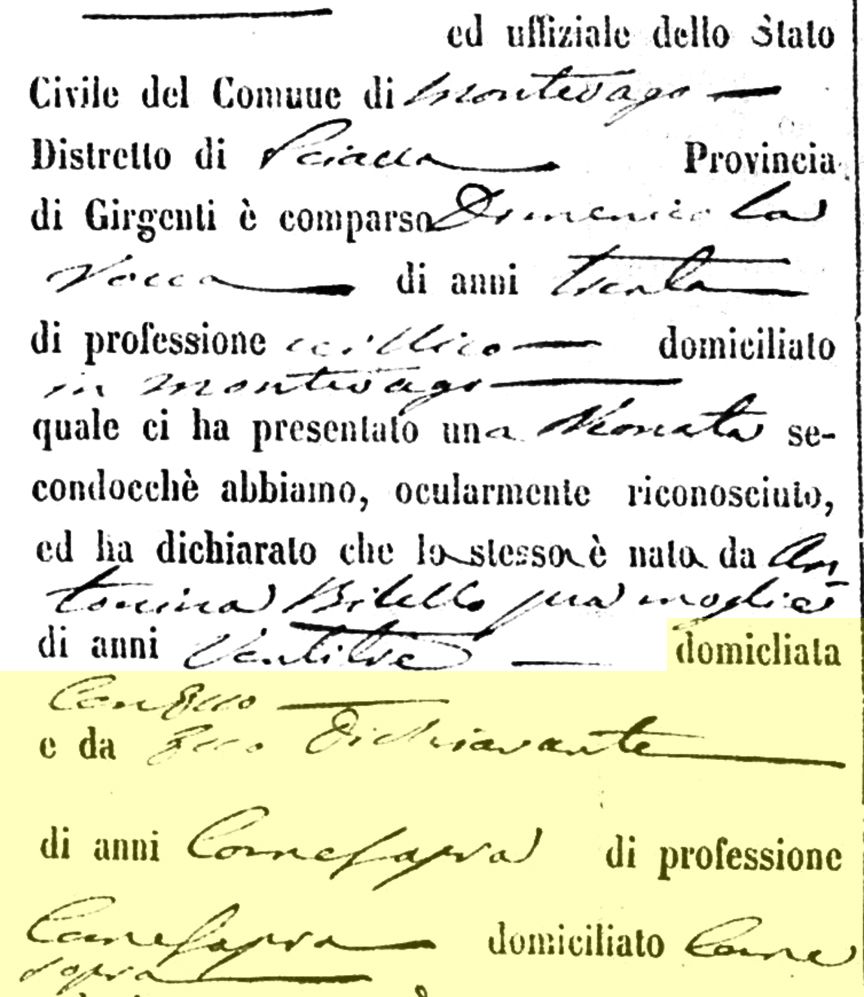 ed uffiziale dello Stato
Civile del Comune di Montevago
Distretto di Sciacca Provincia
di Girgenti è comparso Domenico La
Rocca di anni trenta
di professione villico domiciliato
in Montevago
quale ci ha presentato una Neonata se-
condocchè abbiamo, ocularmente riconosciuto,
ed ha dichiarato che la stessa è nata da An
tonina Bilello sua moglie
di anni Ventitre domicliata
Con esso
e da esso Dichiarante
di anni Come sopra di professione
Come sopra domiciliato Come
sopra